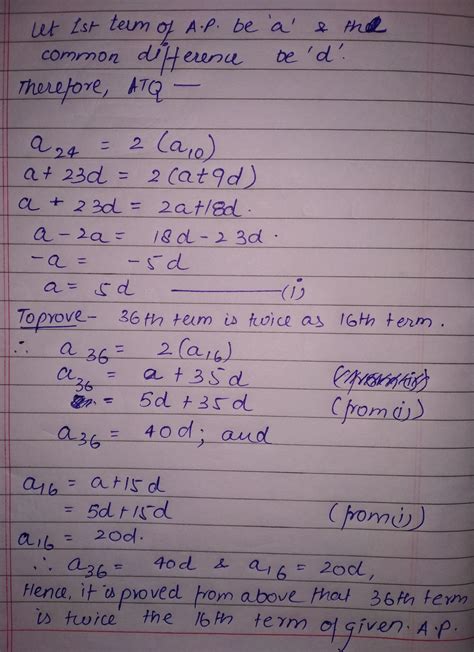 Let 1st term of A.P. be 'a' & the
common difference be 'd'.
Therefore, ATQ —
a₂₄ = 2 (a₁₀)
a + 23d = 2(a+9d)
a + 23d = 2a+18d.
a - 2a = 18d - 23d.
-a = -5d
a = 5d ——— (i)
To prove - 36th term is twice as 16th term.
∴ a₃₆ = 2(a₁₆)
a₃₆ = a + 35d
= 5d + 35d (from(i))
a₃₆ = 40d; and
a₁₆ = a+15d
= 5d+15d (from(i))
a₁₆ = 20d.
∴ a₃₆ = 40d & a₁₆ = 20d,
Hence, it is proved from above that 36th term
is twice the 16th term of given A.P.